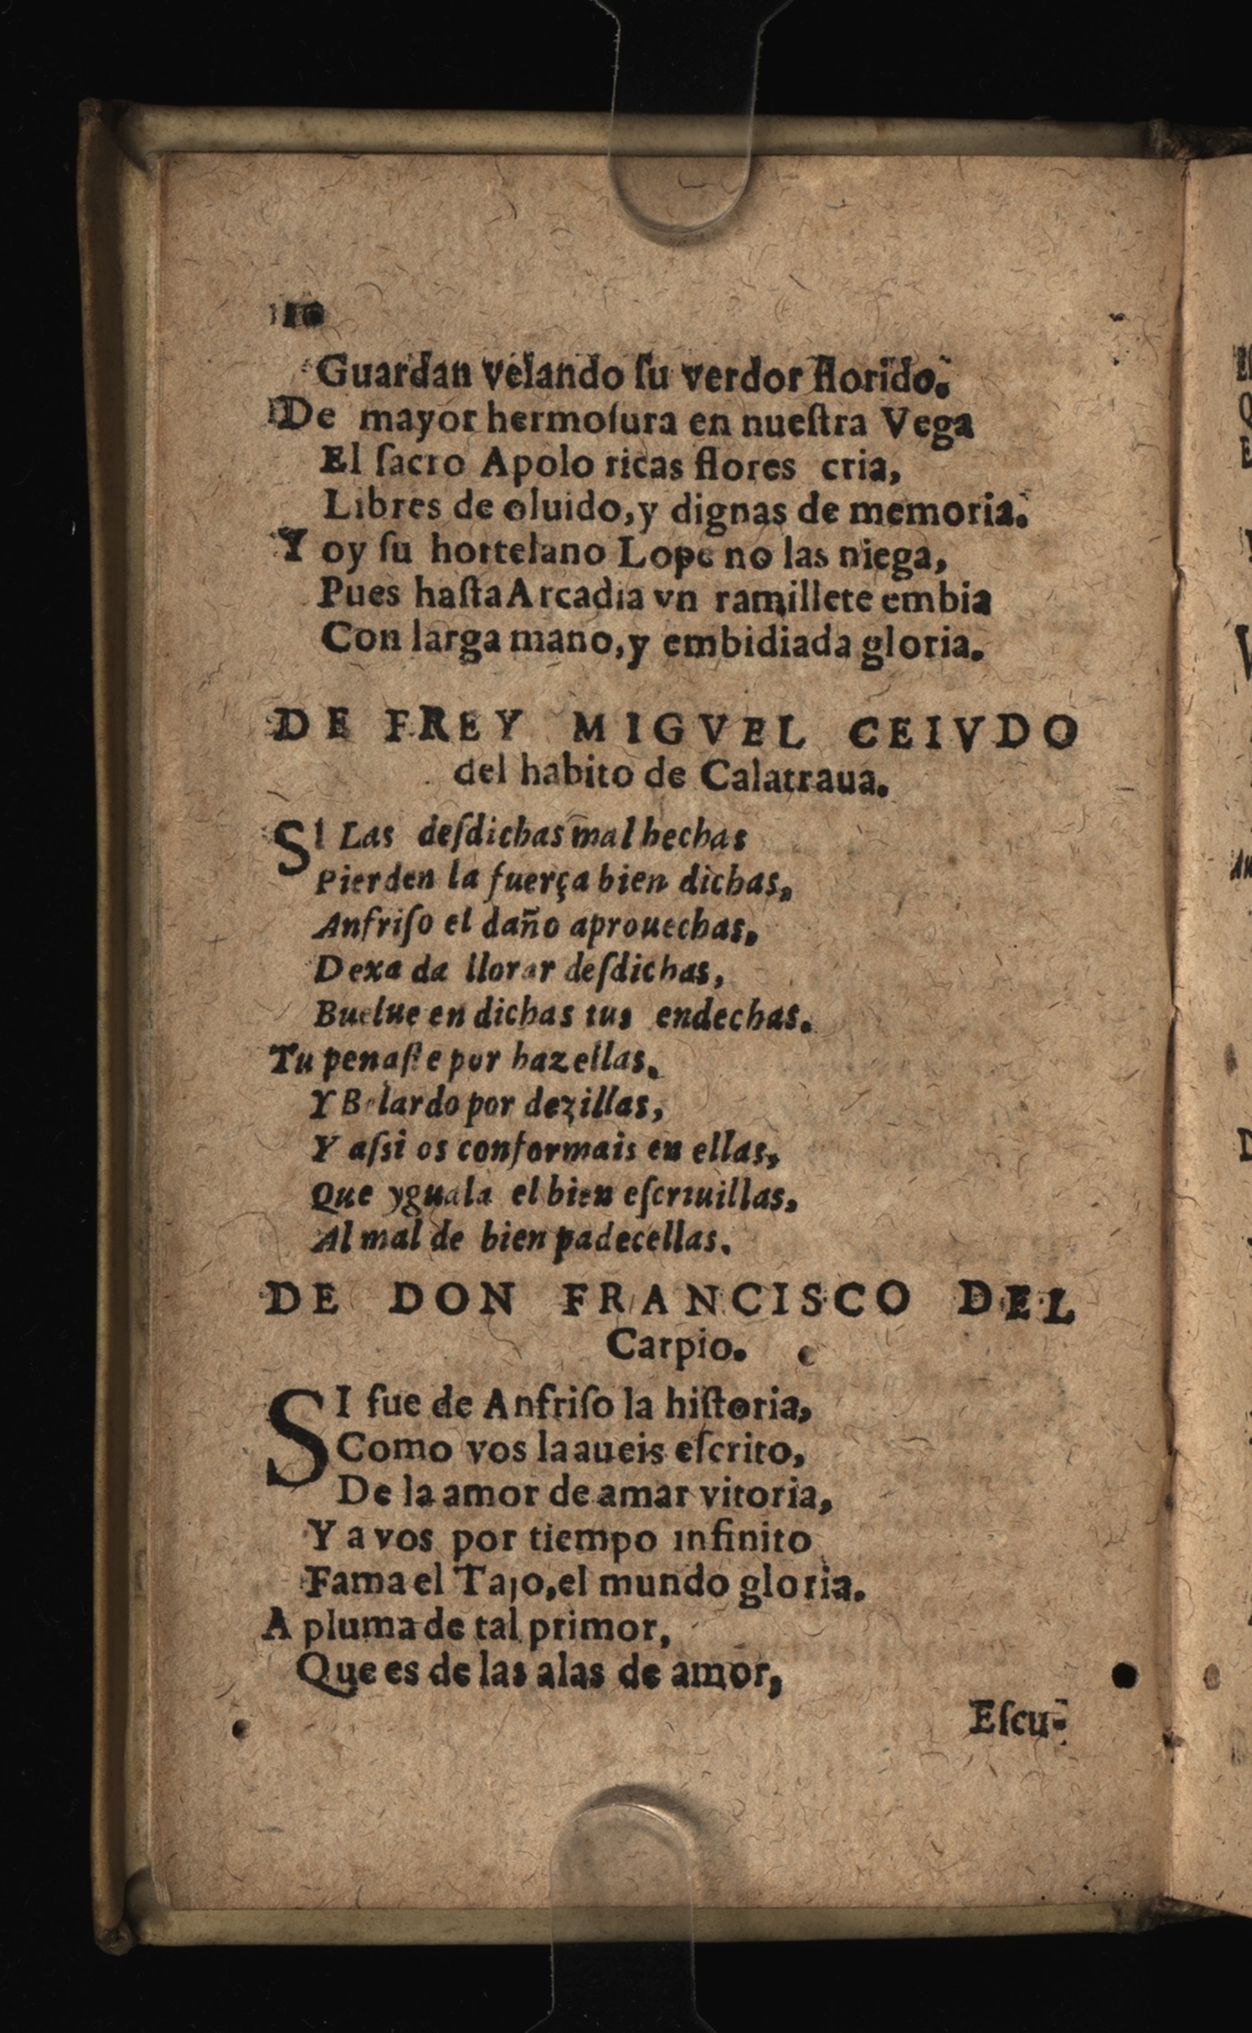 Guardan velando ſu verdor florido.
De mayor hermoſura en nueſtra Vega
El ſacro Apolo ricas flores cria,
Libres de oluido, y dignas de memoria.
Y oy ſu hortelano Lope no las niega,
Pues haſta Arcadia vn ramillete embia
Con larga mano, y embidiada gloria.
DE FREY MIGVEL CEIVDO
del habito de Calatraua.
SI Las deſdichas mal hechas
Pierden la fuerça bien dichas,
Anfriſo el daño aprouechas,
Dexa da llorar deſdichas,
Buelue en dichas tus endechas.
Tu penaſte por hazellas,
Y Belardo por dezillas,
Y aſsi os conformais en ellas,
Que yguala el bien eſcriuillas,
Al mal de bien padecellas.
DE DON FRANCISCO DEL
Carpio.
SI fue de Anfriſo la hiſtoria,
Como vos la aueis eſcrito,
De la amor de amar vitoria,
Y a vos por tiempo infinito
Fama el Tajo, el mundo gloria.
A pluma de tal primor,
Que es de las alas de amor,
Eſcu-